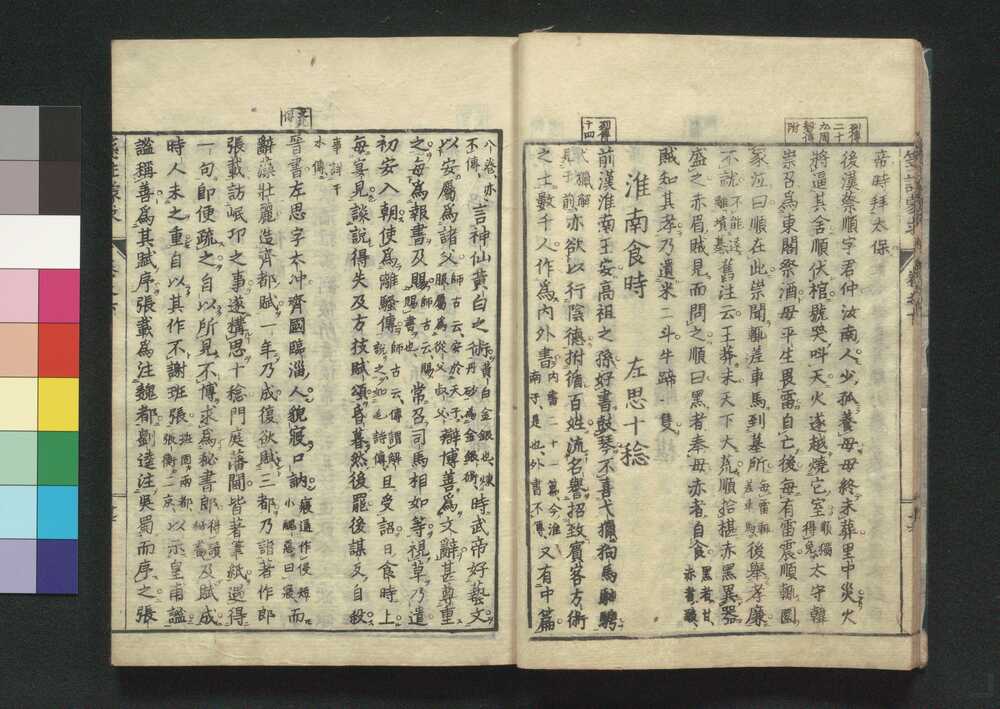 時拜太保
列傳二十九周磐傳附
後漢蔡順字君仲汝南人少孤養母母終未葬里中災火
將逼其舍順伏棺號哭叫天火遂越燒它室順獨得免太守韓
崇召爲東閣祭酒母平生畏雷自亡後每有雷震順輒圜
冢泣曰順在此崇聞輒差車馬到墓所後舉孝廉
不就不能遠離墳墓舊注云王莽末天下大荒順拾椹赤黑異器
盛之赤眉賊見而問之順曰黑者奉母赤者自食黑者甘赤者酸
賊知其孝乃遺米二斗牛蹄一隻
淮南食時 左思十稔
列傳十四
前漢淮南王安高祖之孫好書鼓琴不喜弋獵狗馬馳騁
亦欲以行陰德拊循百姓流名譽招致賓客方術
之士數千人作爲內外書內書二十一篇今淮南子是也外書不傳又有中篇
八卷亦不傳言神仙黃白之術時武帝好藝文
以安屬爲諸父辯博善爲文辭甚尊重
之每爲報書及賜常召司馬相如等視草乃遣
初安入朝使爲離騷傳旦受詔日食時上
每宴見談說得失及方技賦頌昏莫然後罷後謀反自殺
晉書左思字太冲齊國臨淄人貌寢口訥而
辭藻壯麗造齊都賦一年乃成復欲賦三都乃詣著作郎
張載訪岷邛之事遂構思十稔門庭藩溷皆著筆紙遇得
一句卽便疏之自以所見不博求爲秘書郎及賦成
時人未之重自以其作不謝班張班固兩都張衡二京以示皇甫謐
謐稱善爲其賦序張載爲注魏都劉逵注吳蜀而序之張